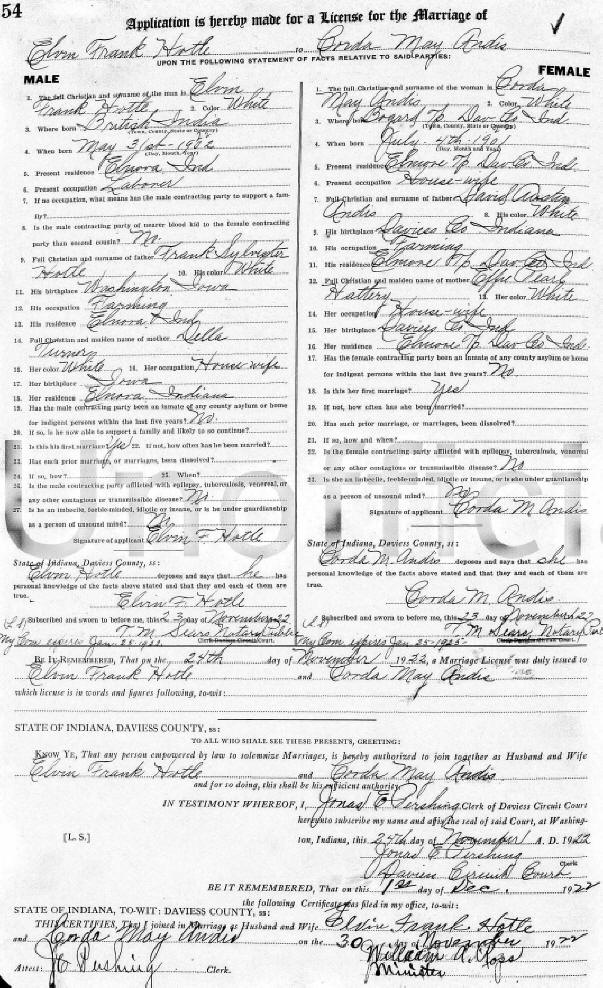 54
Application is hereby made for a License for the Marriage of
Elvin Frank Hotle to Corda May Andis
UPON THE FOLLOWING STATEMENT OF FACTS RELATIVE TO SAID PARTIES:
MALE
1. The full Christian and surname of the man is Elvin
Frank Hotle 2. Color White
3. Where born British India
(Town, County, State or Country)
4. When born May 31st-1902
(Day, Month, Year)
5. Present residence Elnora Ind
6. Present occupation Laborer
7. If no occupation, what means has the male contracting party to support a family?
8. Is the male contracting party of nearer blood kid to the female contracting
party than second cousin? No.
9. Full Christian and surname of father Frank Sylvester
Hotle 10. His color White
11. His birthplace Washington Iowa
12. His occupation Farming
13. His residence Elnora Ind
14. Full Christian and maiden name of mother Della
Turner
15. Her color White 16. Her occupation House wife
17. Her birthplace Iowa
18. Her residence Elnora Indiana
19. Has the male contracting party been an inmate of any county asylum or home
for indigent persons within the last five years? No.
20. If so, is he now able to support a family and likely to so continue?
21. Is this his first marriage Yes 22. If not, how often has he been married?
23. Has such prior marriage, or marriages, been dissolved?
24. If so, how? 25. When?
26. Is the male contracting party afflicted with epilepsy, tuberculosis, venereal, or
any other contagious or transmissible disease? No
27. Is he an imbecile, feeble-minded, idiotic or insane, or is he under guardianship
as a person of unsound mind? No
Signature of applicant Elvin F. Hotle
State of Indiana, Daviess County, ss:
Elvin Hotle deposes and says that he has
personal knowledge of the facts above stated and that they and each of them are
true.
Elvin F. Hotle
(L.S) Subscribed and sworn to before me, this 23 day of November 22
My Com expires Jan. 25-1925. T. M. Sears Notary Public
Clerk Daviess Circuit Court.
FEMALE
1. The full Christian and surname of the woman is Corda
May Andis 2. Color White
3. Where born Bogard Tp. Dav. Co Ind
(Town, County, State or Country)
4. When born July 4th-1901
(Day, Month and Year)
5. Present residence Elmore Tp Dav Co Ind.
6. Present occupation House-wife
7. Full Christian and surname of father David Austin
Andis 8. His color White
9. His birthplace Daviess Co Indiana
10. His occupation Farming
11. His residence Elmore Tp. Dav Co Ind
12. Full Christian and maiden name of mother Effie Pearl
Hattery 13. Her color White
14. Her occupation House-wife
15. Her birthplace Daviess Co Ind
16. Her residence Elmore Tp Dav Co Ind.
17. Has the female contracting party been an inmate of any county asylum or home
for indigent persons within the last five years? No
18. Is this her first marriage? Yes
19. If not, how often has she been married?
20. Has such prior marriage, or marriages, been dissolved?
21. If so, how and when?
22. Is the female contracting party afflicted with epilepsy, tuberculosis, venereal
or any other contagious or transmissible disease? No
23. Is she an imbecile, feeble-minded, idiotic or insane, or is she under guardianship
as a person of unsound mind? No
Signature of applicant Corda M Andis
State of Indiana, Daviess County, ss:
Corda M. Andis deposes and says that she has
personal knowledge of the facts above stated and that they and each of them are
true.
Corda M. Andis
(L.S) Subscribed and sworn to before me, this 23 day of November 22
My Com expires Jan 25-1925- T. M. Sears, Notary Pub
Clerk Daviess Circuit Court.
BE IT REMEMBERED, That on the 24th day of November 1922, a Marriage License was duly issued to
Elvin Frank Hotle and Corda May Andis
which license is in words and figures following, to-wit:
STATE OF INDIANA, DAVIESS COUNTY, ss:
TO ALL WHO SHALL SEE THESE PRESENTS, GREETING:
KNOW YE, That any person empowered by law to solemnize Marriages, is hereby authorized to join together as Husband and Wife
Elvin Frank Hotle and Corda May Andis
and for so doing, this shall be his sufficient authority.
IN TESTIMONY WHEREOF, I, Jonas E Pershing Clerk of Daviess Circuit Court
hereunto subscribe my name and affix the seal of said Court, at Washing-
[L. S.] ton, Indiana, this 24th day of November A. D. 1922
Jonas E Pershing
Clerk
Daviess Circuit Court
BE IT REMEMBERED, That on this 1st day of Dec. 1922
the following Certificate was filed in my office, to-wit:
STATE OF INDIANA, TO-WIT: DAVIESS COUNTY, ss:
THIS CERTIFIES, That I joined in Marriage as Husband and Wife Elvin Frank Hotle
and Corda May Andis on the 30 day of November 1922
William A.
Minister
Attest: J E Pershing Clerk.